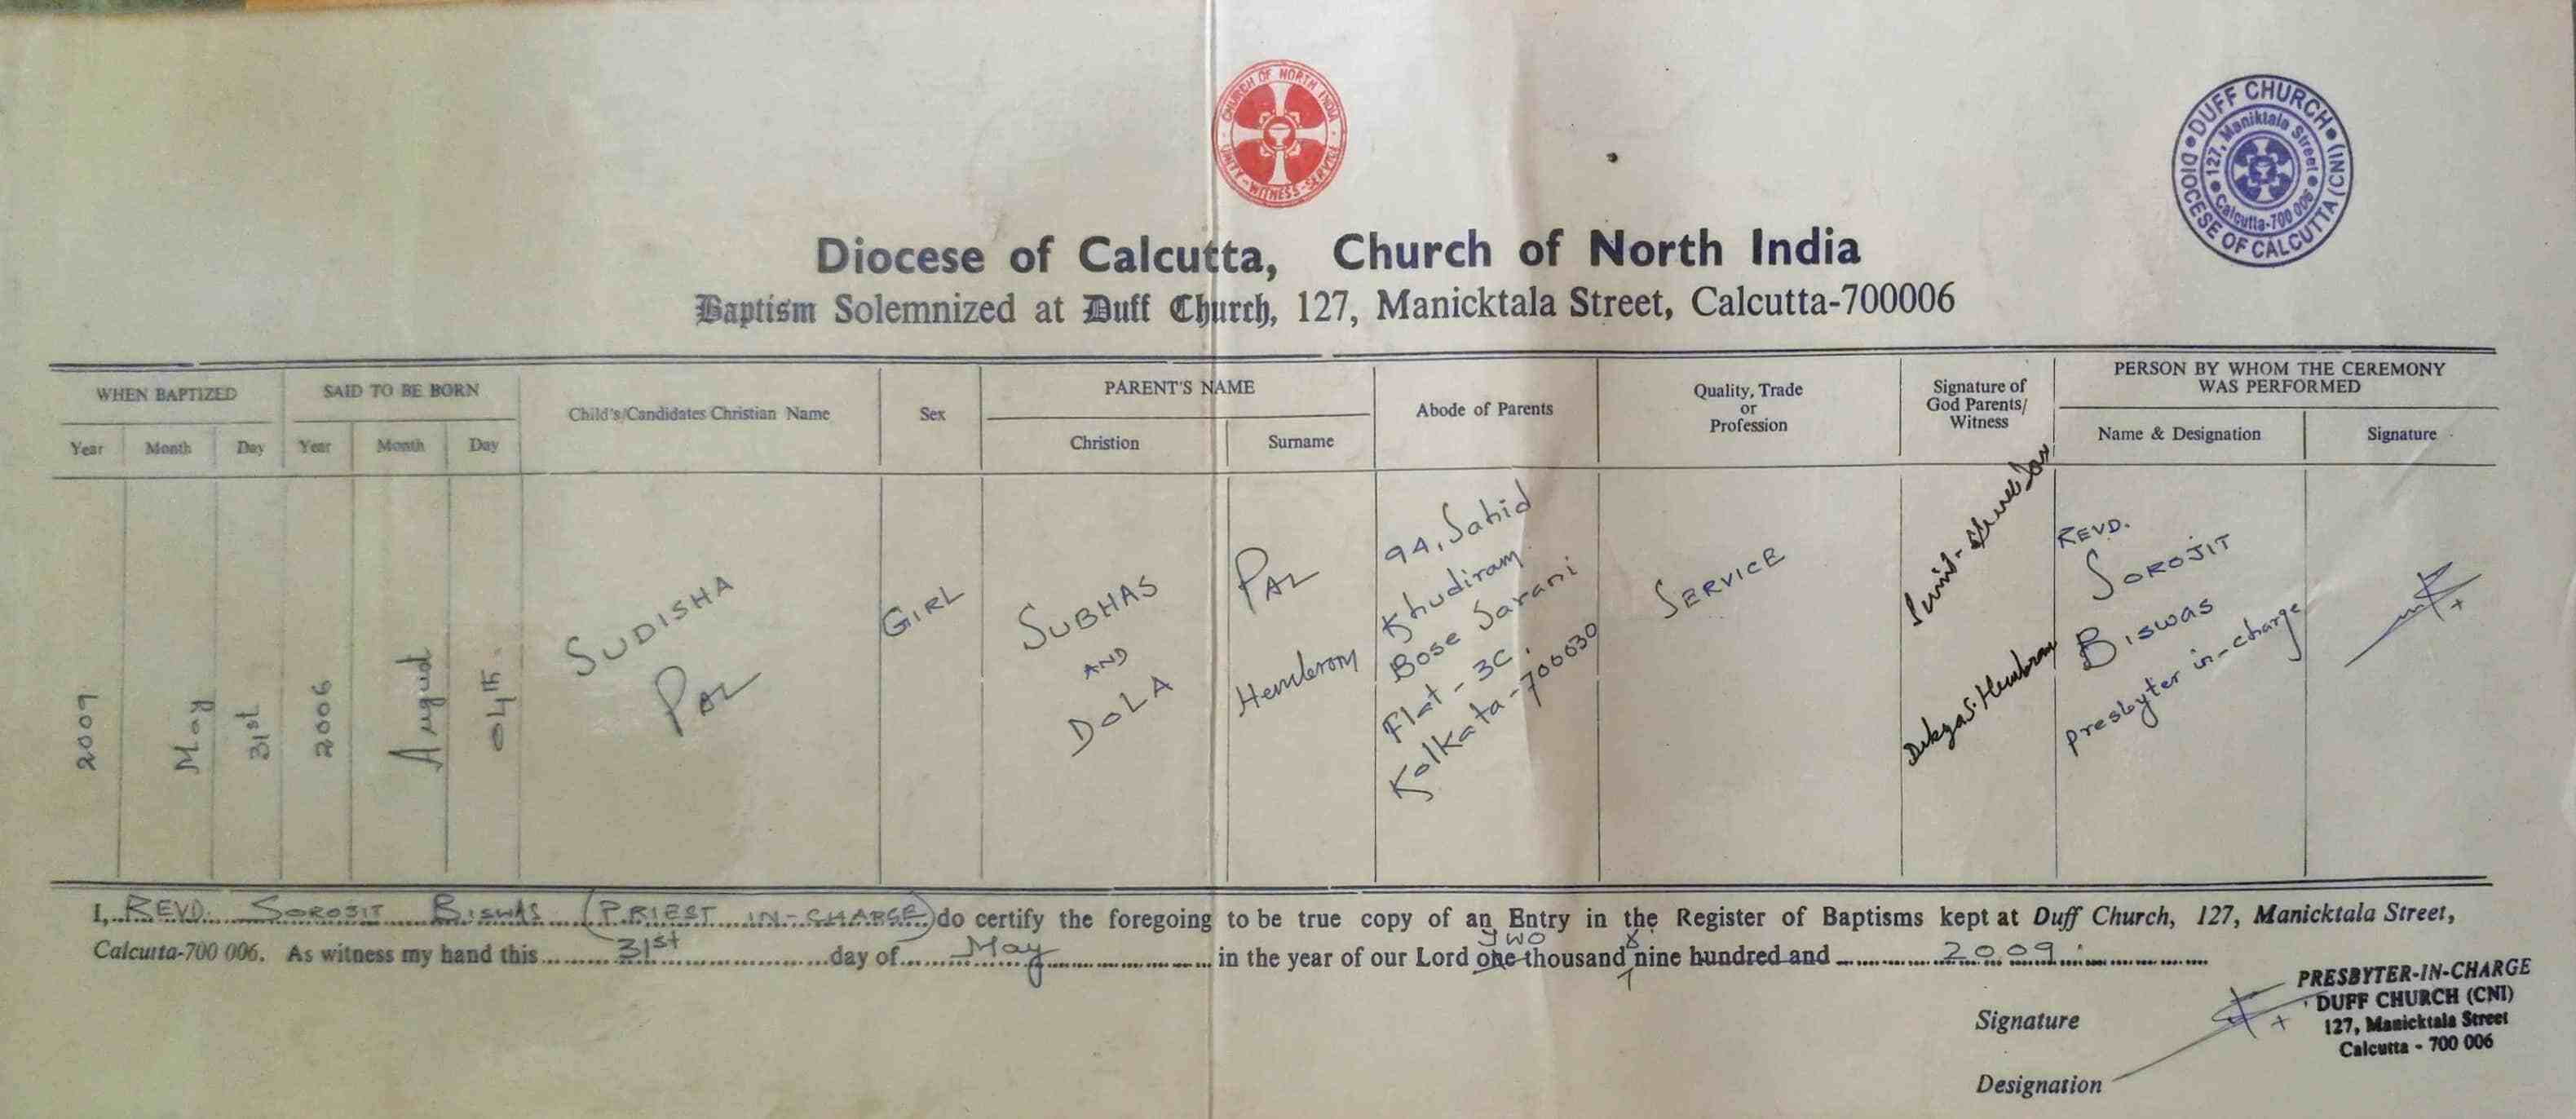 CHURCH OF NORTH INDIA
UNITY - WITNESS - SERVICE
DUFF CHURCH (CNI)
DIOCESE OF CALCUTTA
127, Maniktala Street
Calcutta-700 006
Diocese of Calcutta, Church of North India
Baptism Solemnized at Duff Church, 127, Manicktala Street, Calcutta-700006
WHEN BAPTIZED
Year Month Day
SAID TO BE BORN
Year Month Day
Child's/Candidates Christian Name
Sex
PARENT'S NAME
Christion Surname
Abode of Parents
Quality, Trade
or
Profession
Signature of
God Parents/
Witness
PERSON BY WHOM THE CEREMONY
WAS PERFORMED
Name & Designation Signature
2009
May
31st
2006
August
04th.
SUDISHA
PAL
GIRL
SUBHAS
AND
DOLA
PAL
Hembrom
9A, Sahid
Khudiram
Bose Sarani
Flat - 3C.
Kolkata-700030
SERVICE
REVD.
SOROJIT
BISWAS
presbyter in-charge
I, REVD. SOROJIT BISWAS (PRIEST IN-CHARGE) do certify the foregoing to be true copy of an Entry in the Register of Baptisms kept at Duff Church, 127, Manicktala Street,
Calcutta-700 006. As witness my hand this 31st day of May in the year of our Lord one two thousand nine hundred and 2009.
PRESBYTER-IN-CHARGE
DUFF CHURCH (CNI)
127, Manicktala Street
Calcutta - 700 006
Signature
Designation